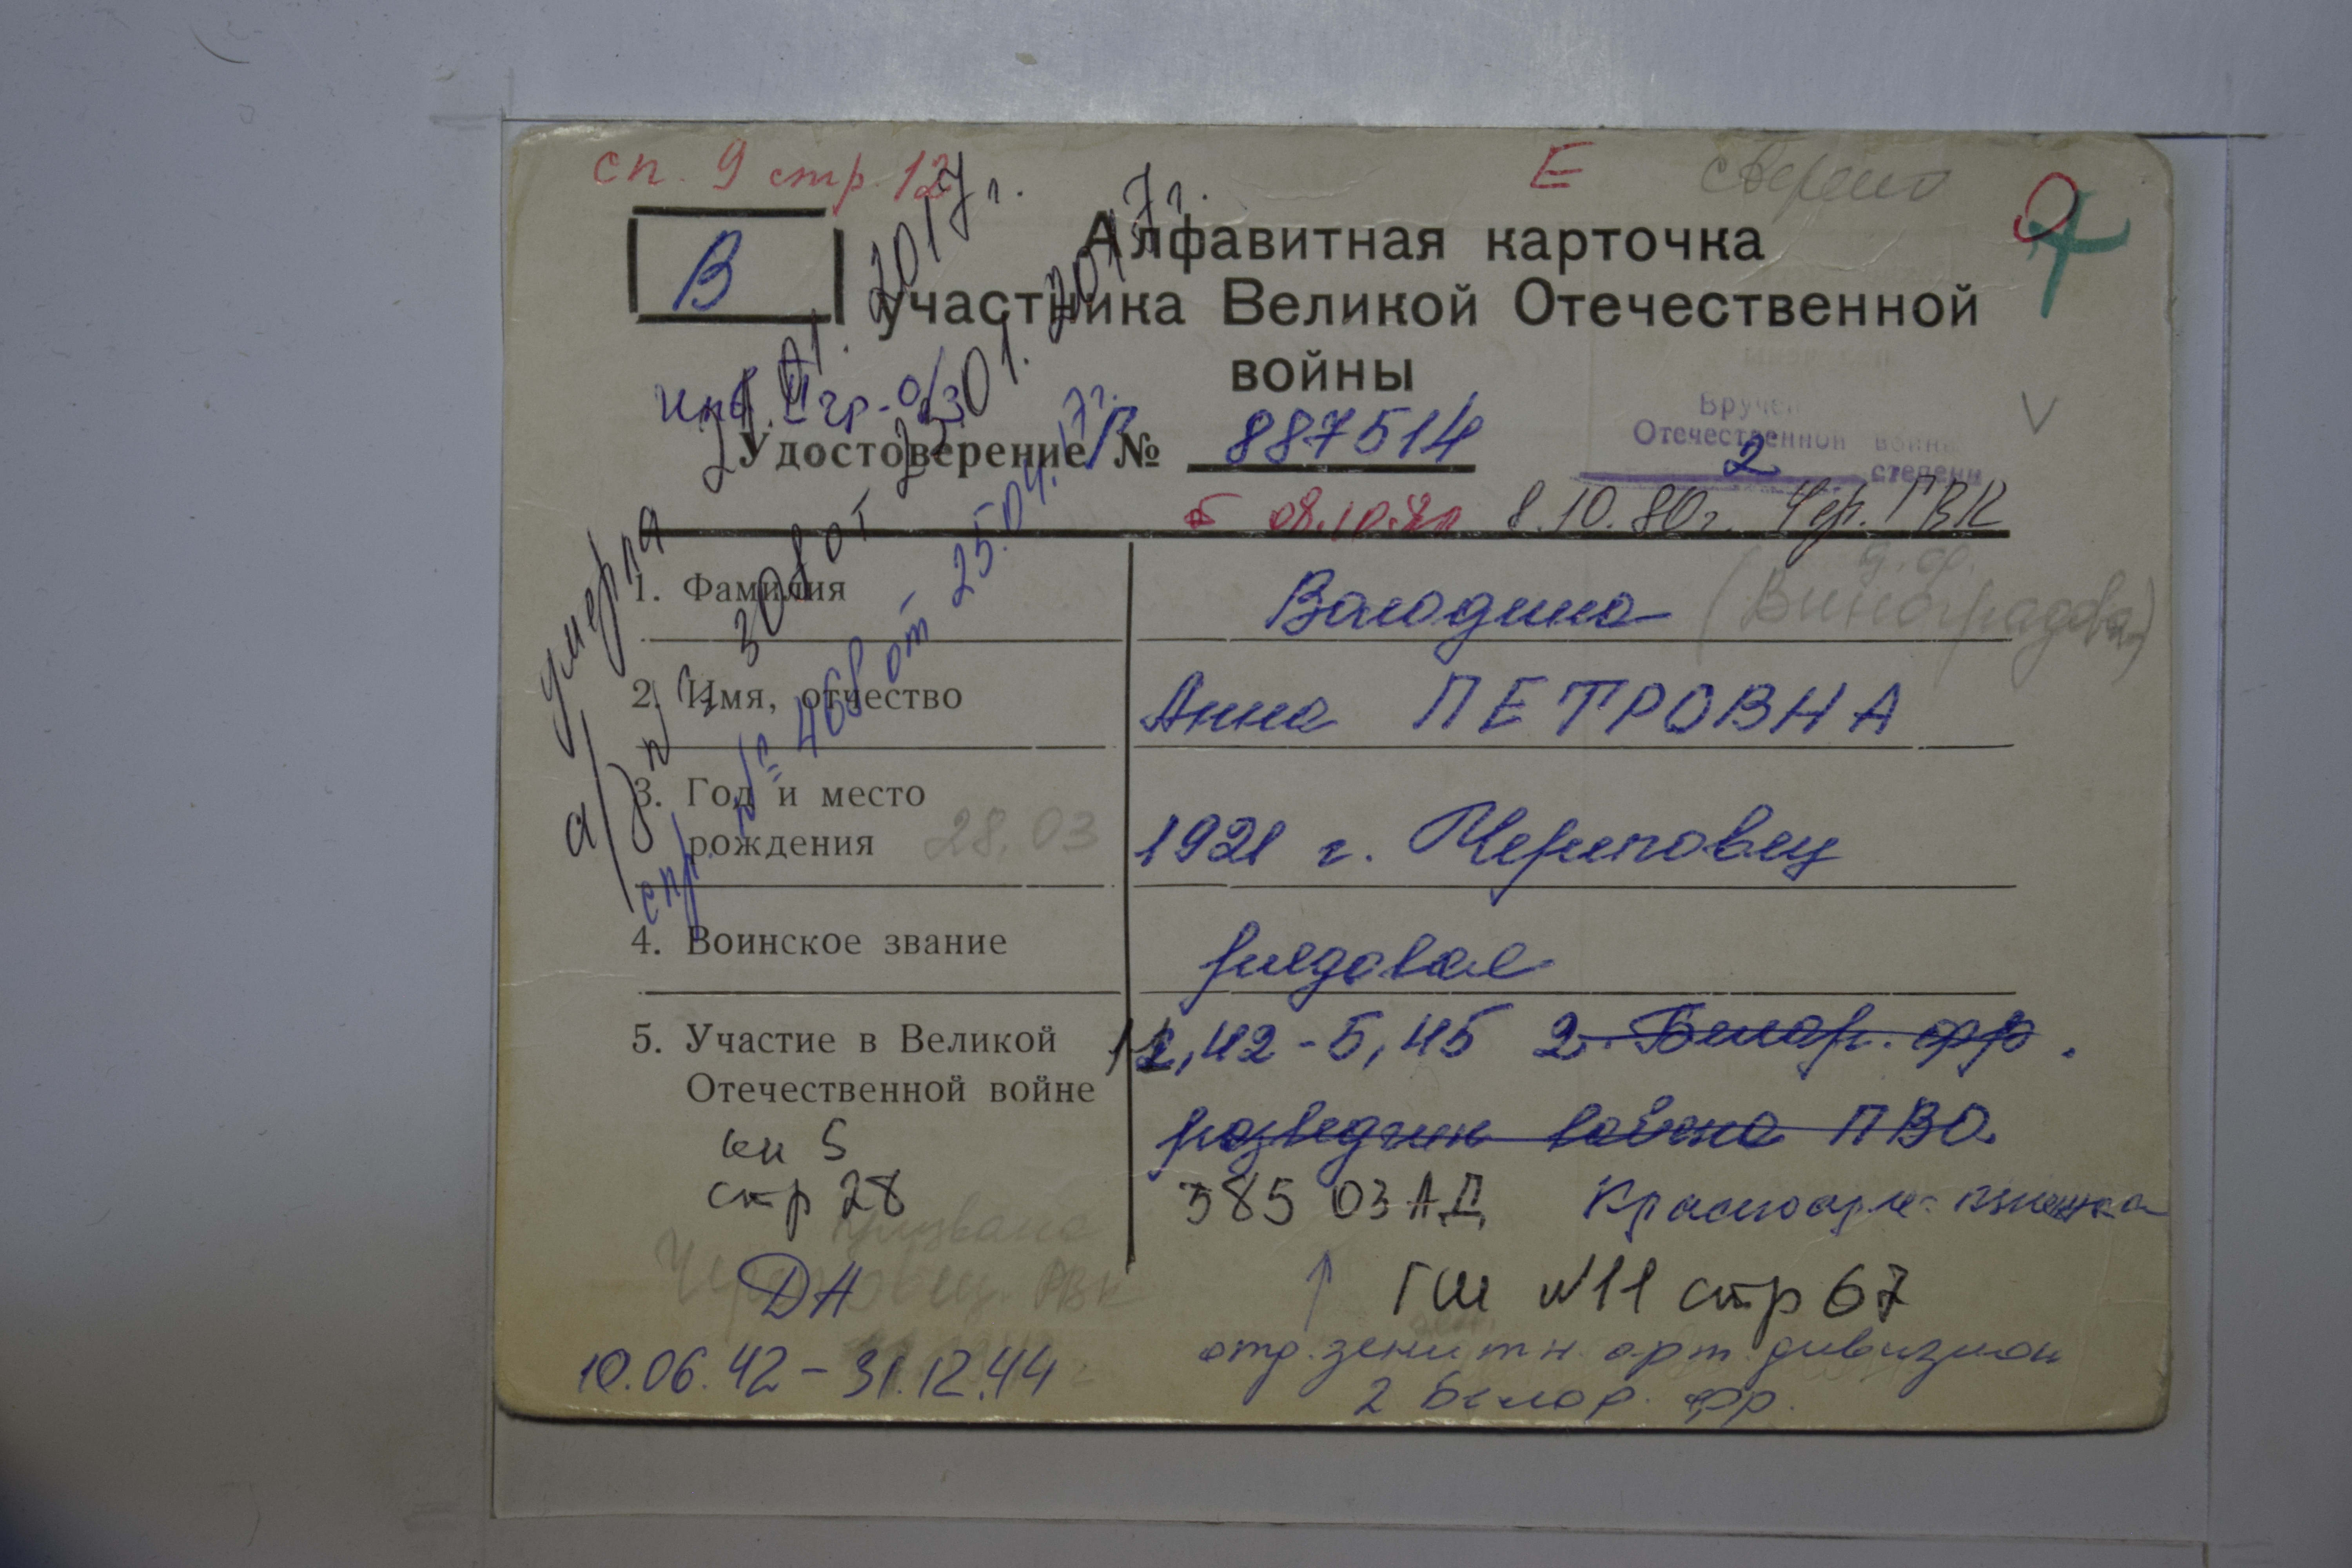 сп. 9 стр. 12
Е сверено
В
Алфавитная карточка
участника Великой Отечественной
войны
инв. II гр. о/з
Удостоверение В № 887514
Вручен
Отечественной войны
2 степени
08.10.80 8.10.80г. Чер. ГВК
умерла 21.01.2017г.
а/з № 308 от 23.01.2017г.
спр. № 468 от 25.04.17г.
1. Фамилия Володина (Виноградова)
д. ф.
2. Имя, отчество Анна ПЕТРОВНА
3. Год и место
рождения 28.03 1921 г. Череповец
4. Воинское звание рядовая
5. Участие в Великой 12,42-5,45 2 Белор. фр.
Отечественной войне
разведчик войска ПВО.
кн 5
стр 28
385 ОЗАД Красноарм. книжка
призвана
Череповец. РВК
ДА
↑ ГШ №11 стр 67
отд. зенитн. арт. дивизион
10.06.42 - 31.12.44
2 Белор. фр.